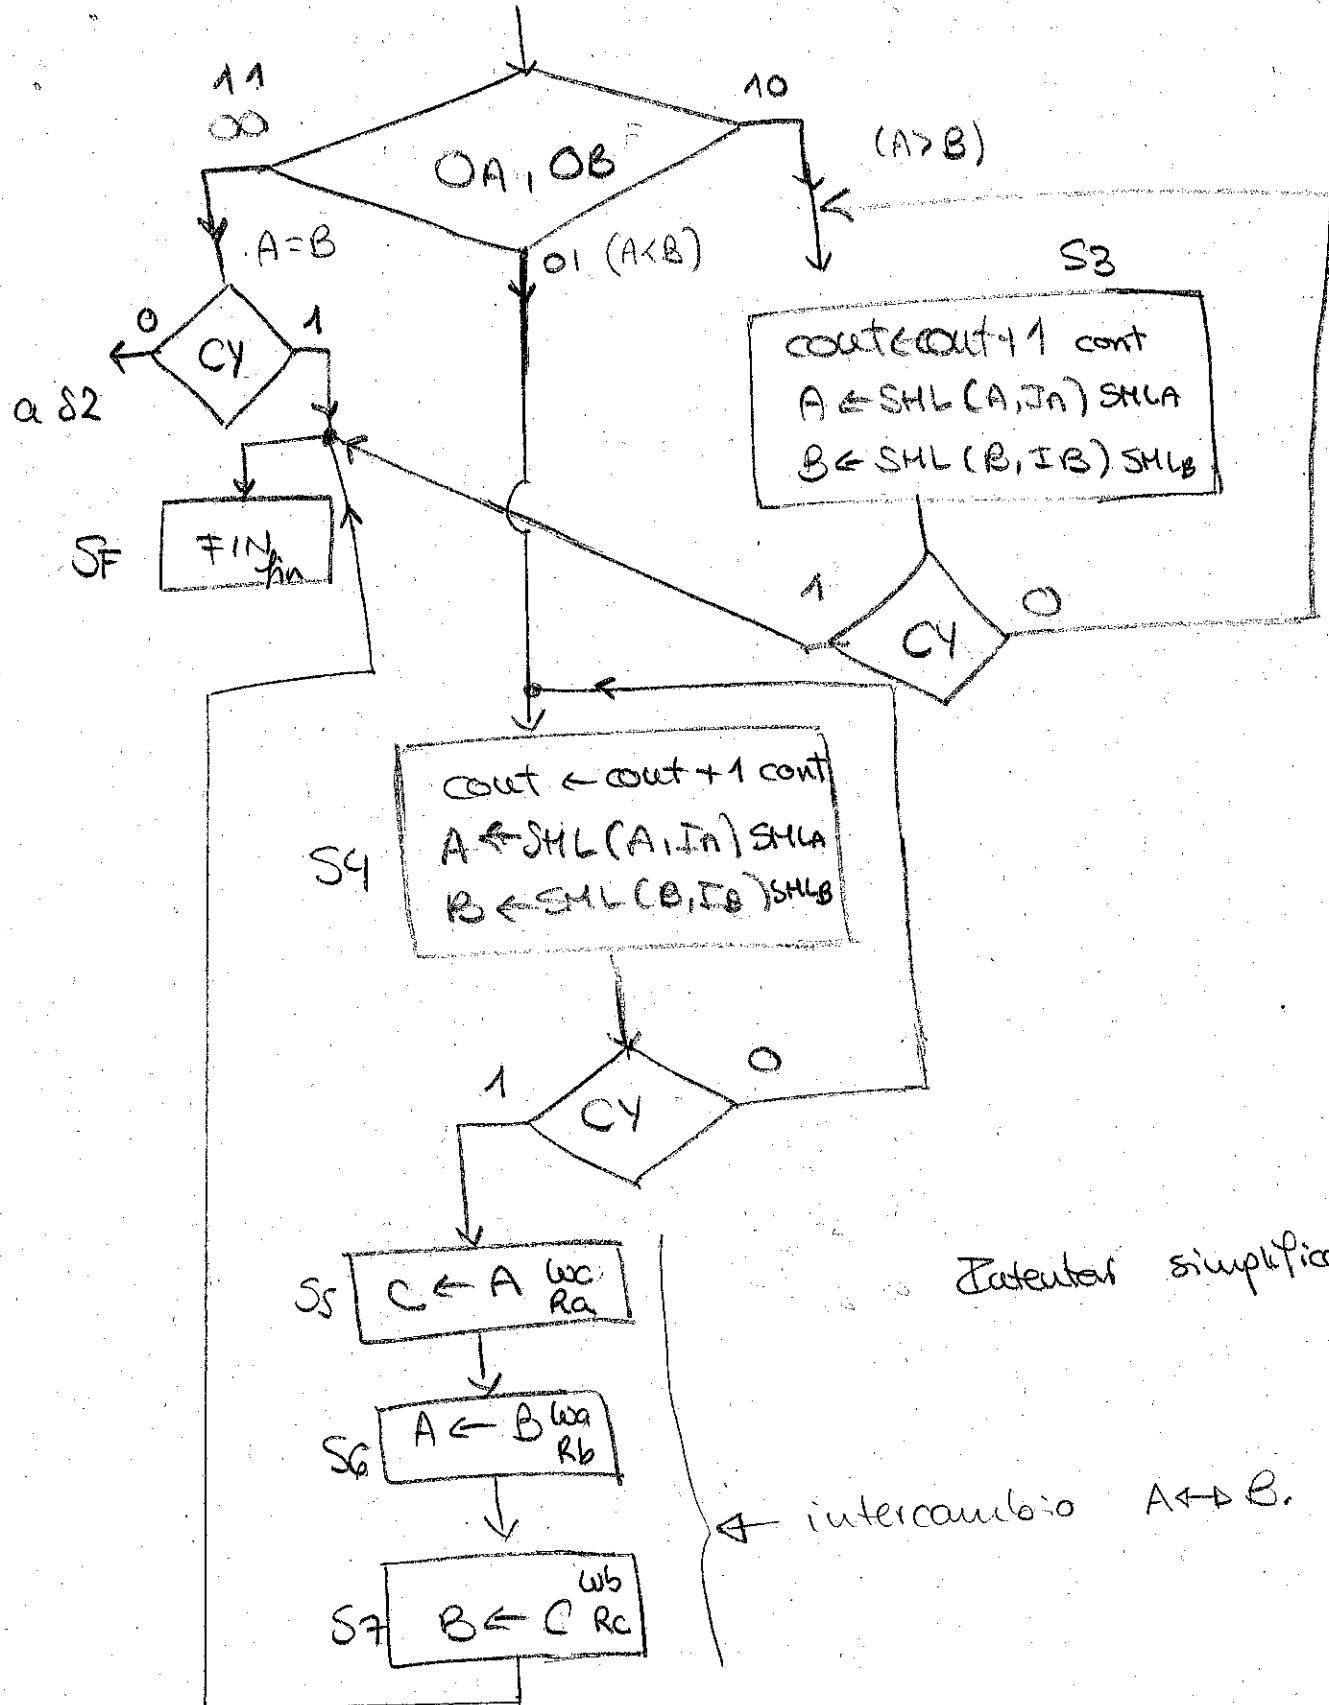 11
00
10
OA, OB
(A>B)
A=B
01 (A<B)
0
1
CY
a S2
S3
cont←cont+1 cont
A ← SHL(A, IA) SHLA
B ← SHL(B, IB) SHLB
SF
FIN fin
1
0
CY
S4
cont ← cont + 1 cont
A ← SHL(A, IA) SHLA
B ← SHL(B, IB) SHLB
1
0
CY
S5
C ← A Wc
Ra
Intentar
S6
A ← B Wa
Rb
← intercambio A↔B.
S7
Wb
B ← C Rc